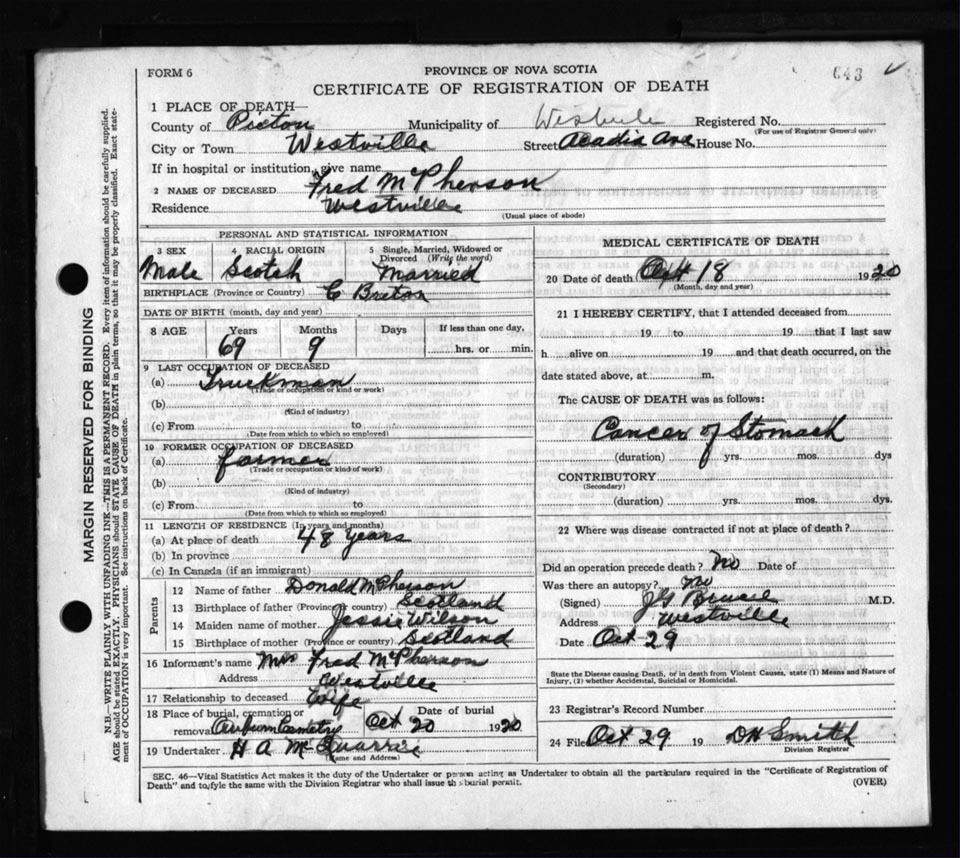 FORM 6
PROVINCE OF NOVA SCOTIA
643
CERTIFICATE OF REGISTRATION OF DEATH
1 PLACE OF DEATH—
County of Pictou Municipality of Westville Registered No.
(For use of Registrar General only)
City or Town Westville Street Acadia Ave House No.
If in hospital or institution, give name
2 NAME OF DECEASED Fred McPherson
Residence Westville
(Usual place of abode)
PERSONAL AND STATISTICAL INFORMATION
3 SEX 4 RACIAL ORIGIN 5 Single, Married, Widowed or Divorced (Write the word)
Male Scotch Married
BIRTHPLACE (Province or Country) C Breton
DATE OF BIRTH (month, day and year)
8 AGE Years Months Days If less than one day,
69 9 hrs. or min.
9 LAST OCCUPATION OF DECEASED
(a) Truckman
(Trade or occupation or kind of work)
(b)
(Kind of industry)
(c) From to
(Date from which to which so employed)
10 FORMER OCCUPATION OF DECEASED
(a) farmer
(Trade or occupation or kind of work)
(b)
(Kind of industry)
(c) From to
(Date from which to which so employed)
11 LENGTH OF RESIDENCE (In years and months)
(a) At place of death 48 years
(b) In province
(c) In Canada (if an immigrant)
Parents
12 Name of father Donald McPherson
13 Birthplace of father (Province or country) Scotland
14 Maiden name of mother Jessie Wilson
15 Birthplace of mother (Province or country) Scotland
16 Informant's name Mrs Fred McPherson
Address Westville
17 Relationship to deceased Wife
18 Place of burial, cremation or removal Date of burial
Cemetry Oct 20 1920
19 Undertaker H A McQuarrie
(Name and Address)
MEDICAL CERTIFICATE OF DEATH
20 Date of death 18 1920
(Month, day and year)
21 I HEREBY CERTIFY, that I attended deceased from
19 to 19 that I last saw
h alive on 19 and that death occurred, on the
date stated above, at m.
The CAUSE OF DEATH was as follows:
Cancer of Stomach
(duration) yrs. mos. dys
CONTRIBUTORY
(Secondary)
(duration) yrs. mos. dys.
22 Where was disease contracted if not at place of death?
Did an operation precede death? No Date of
Was there an autopsy? No
(Signed) J G M.D.
Address Westville
Date Oct 29
State the Disease causing Death, or in death from Violent Causes, state (1) Means and Nature of
Injury, (2) whether Accidental, Suicidal or Homicidal.
23 Registrar's Record Number
24 Filed Oct 29 19 DH Smith
Division Registrar
SEC. 46—Vital Statistics Act makes it the duty of the Undertaker or person acting as Undertaker to obtain all the particulars required in the "Certificate of Registration of
Death" and to fyle the same with the Division Registrar who shall issue the burial permit.
(OVER)
MARGIN RESERVED FOR BINDING
N.B.—WRITE PLAINLY WITH UNFADING INK—THIS IS A PERMANENT RECORD. Every item of information should be carefully supplied.
AGE should be stated EXACTLY. PHYSICIANS should STATE CAUSE OF DEATH in plain terms, so that it may be properly classified. Exact state-
ment of OCCUPATION is very important. See instructions on back of Certificate.